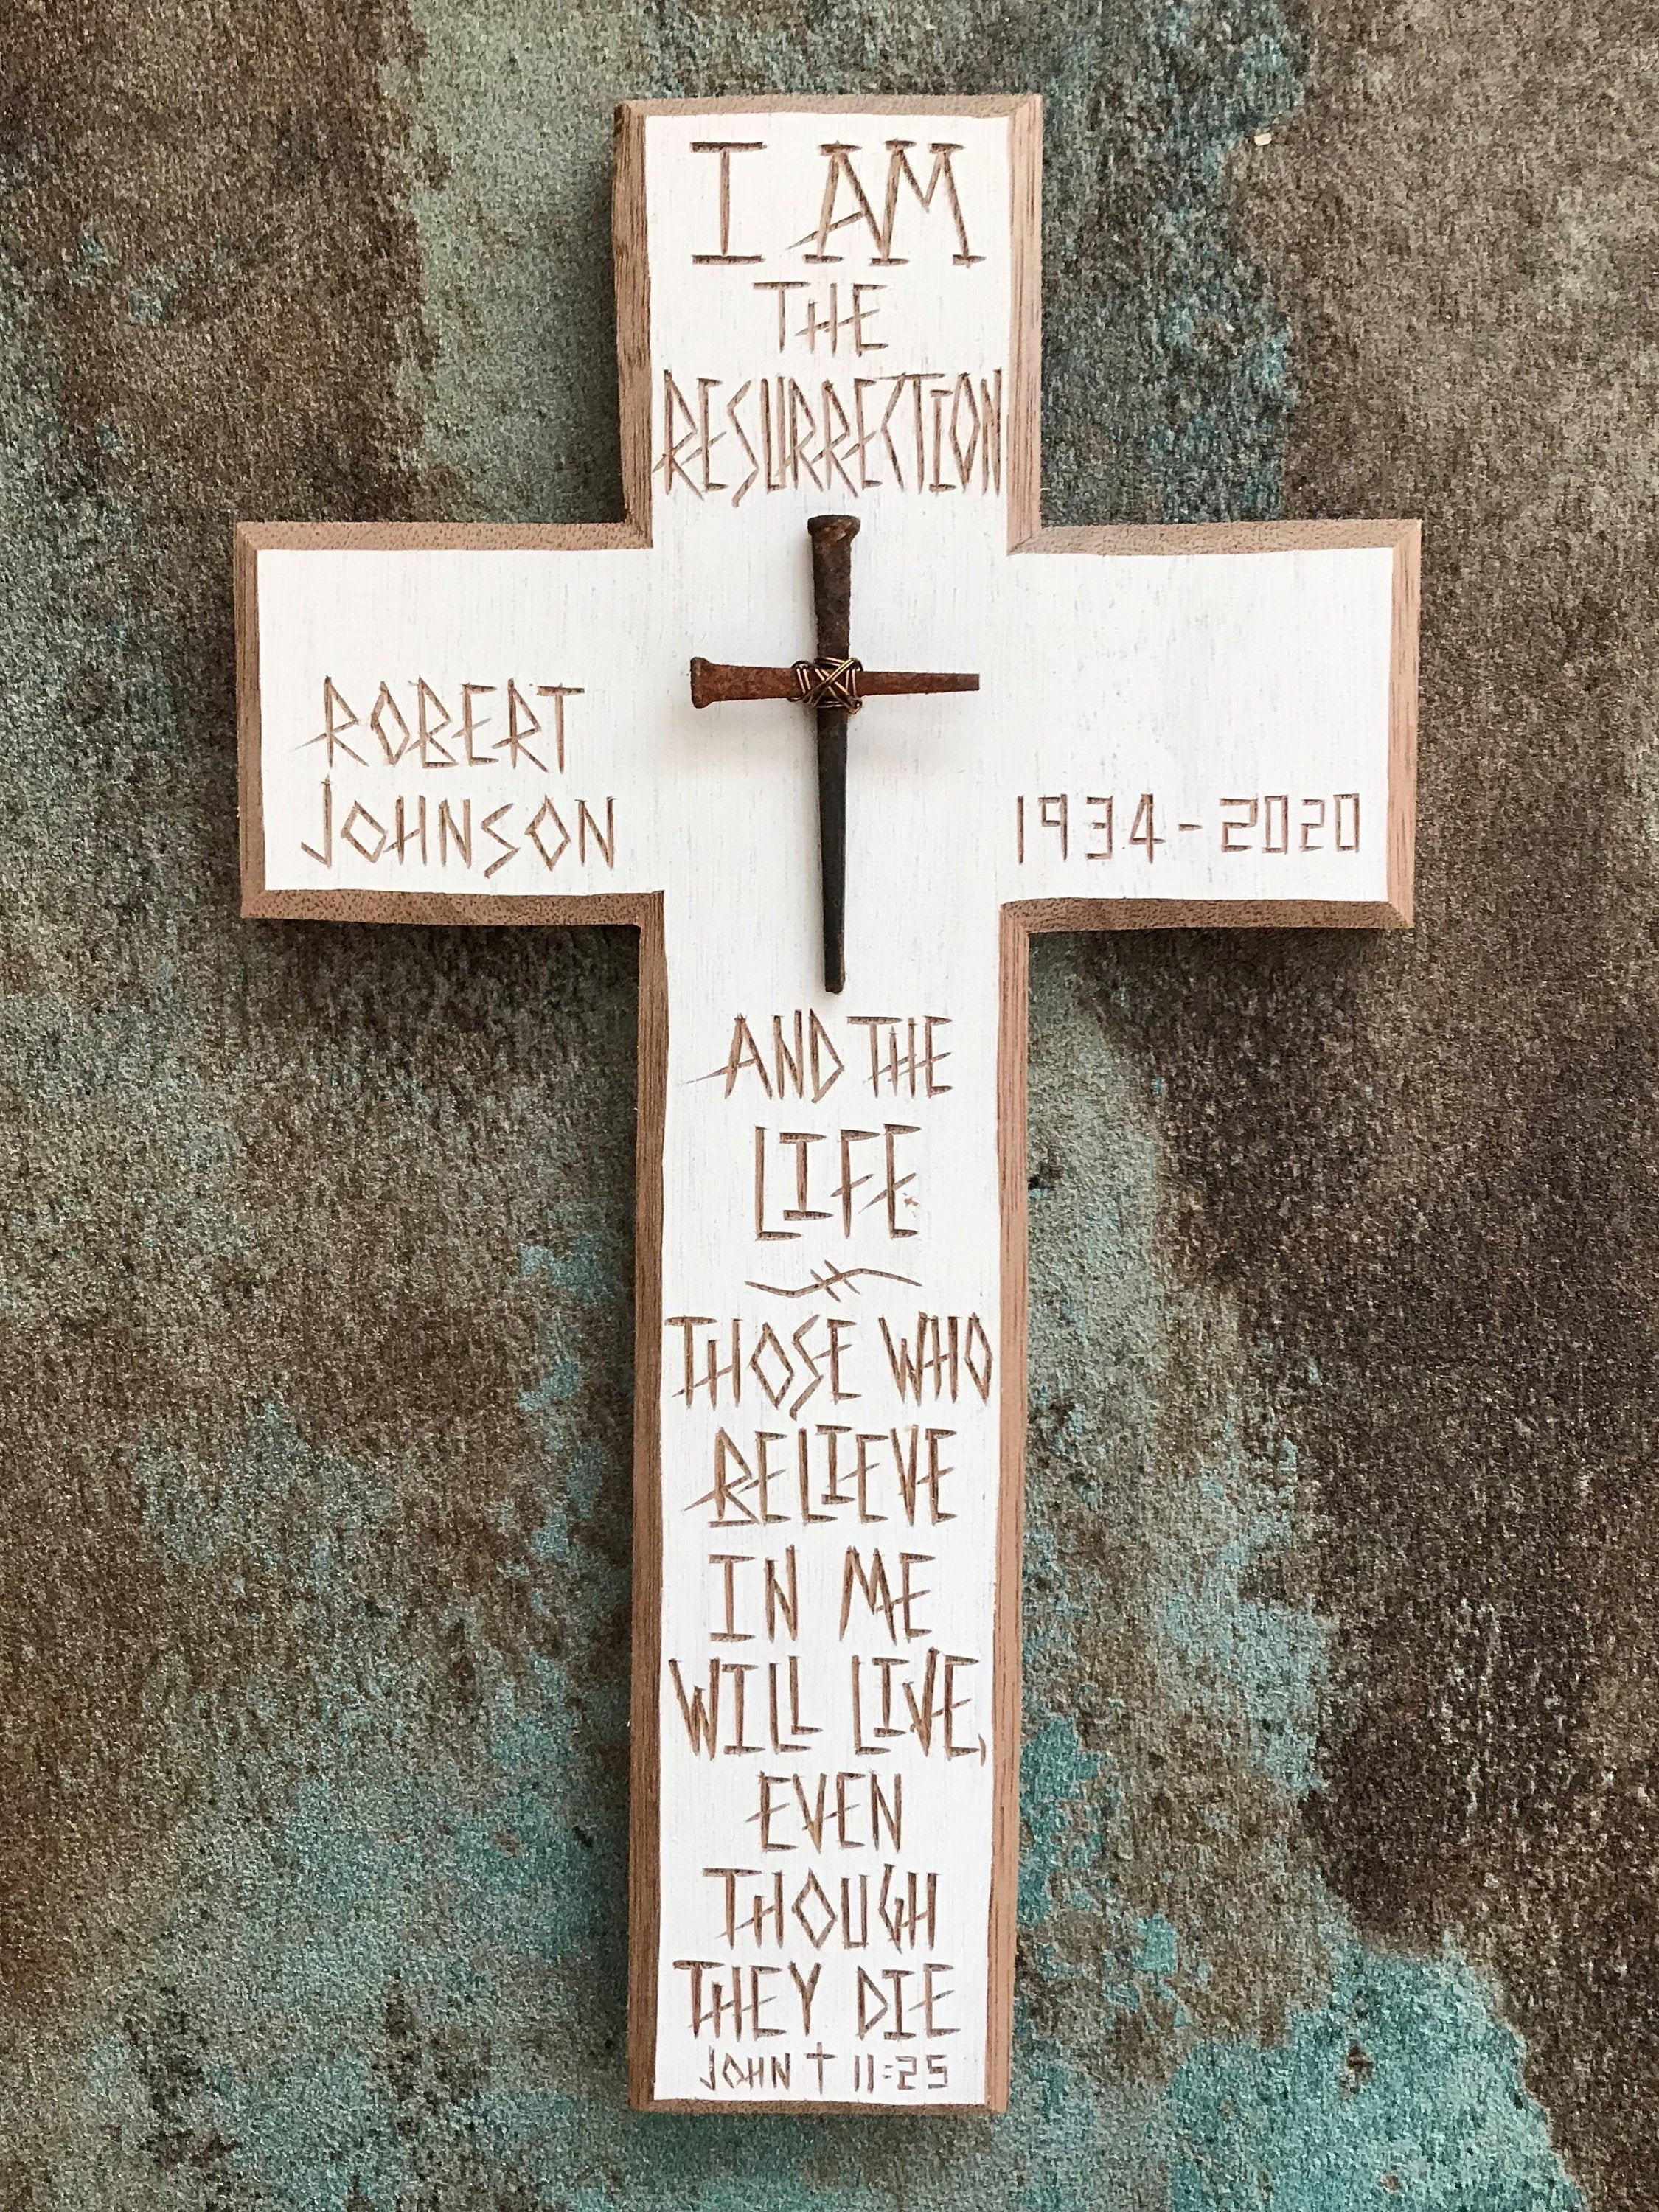 I AM
THE
RESURRECTION
ROBERT
JOHNSON
1934-2020
AND THE
LIFE
THOSE WHO
BELIEVE
IN ME
WILL LIVE,
EVEN
THOUGH
THEY DIE
JOHN † 11:25